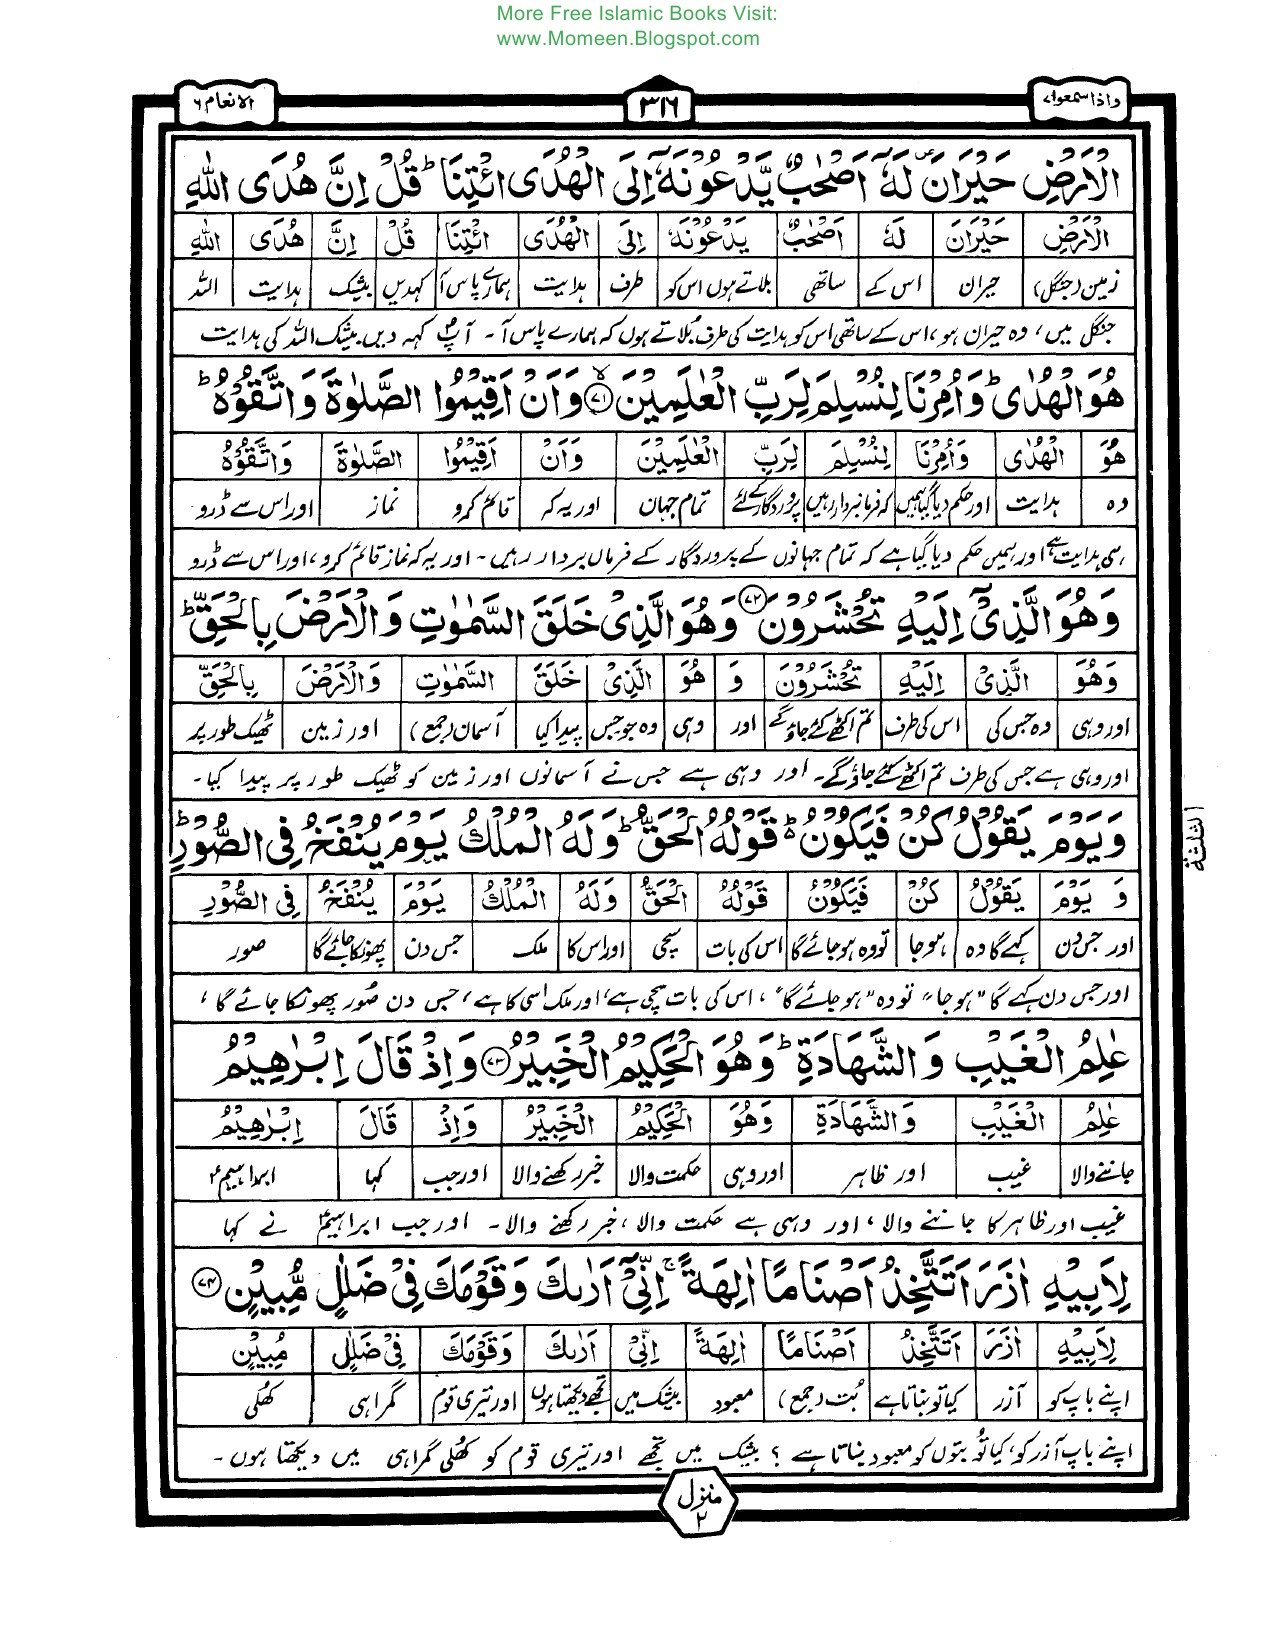 More Free Islamic Books Visit:
www.Momeen.Blogspot.com
واذاسمعوا۷
۳۱۶
الانعام ۶
الْاَرْضِ حَيْرَانَ ۪ لَهٗۤ اَصْحٰبٌ يَّدْعُوْنَهٗۤ اِلَى الْهُدَى ائْتِنَا ؕ قُلْ اِنَّ هُدَى اللّٰهِ
الْاَرْضِ حَيْرَانَ لَهٗ اَصْحٰبٌ يَدْعُوْنَهٗ اِلَى الْهُدَى ائْتِنَا قُلْ اِنَّ هُدَى اللّٰهِ
زمین (جنگل) حیران اس کے ساتھی بلاتے ہوں اس کو طرف ہدایت ہمارے پاس آ کہدیں بیشک ہدایت اللہ
جنگل میں، وہ حیران ہو، اس کے ساتھی اس کو ہدایت کی طرف بُلاتے ہوں کہ ہمارے پاس آ۔ آپؐ کہہ دیں بیشک اللہ کی ہدایت
هُوَ الْهُدٰى ؕ وَاُمِرْنَا لِنُسْلِمَ لِرَبِّ الْعٰلَمِيْنَ ۙ﴿۷۱﴾ وَاَنْ اَقِيْمُوا الصَّلٰوةَ وَاتَّقُوْهُ ؕ
هُوَ الْهُدٰى وَاُمِرْنَا لِنُسْلِمَ لِرَبِّ الْعٰلَمِيْنَ وَاَنْ اَقِيْمُوا الصَّلٰوةَ وَاتَّقُوْهُ
وہ ہدایت اور حکم دیا گیا ہمیں کہ فرمانبردار رہیں پروردگار کے لئے تمام جہان اور یہ کہ قائم کرو نماز اور اس سے ڈرو
ہی ہدایت ہے اور ہمیں حکم دیا گیا ہے کہ تمام جہانوں کے پروردگار کے فرماں بردار رہیں۔ اور یہ کہ نماز قائم کرو، اور اس سے ڈرو
وَهُوَ الَّذِىْۤ اِلَيْهِ تُحْشَرُوْنَ ﴿۷۲﴾ وَهُوَ الَّذِىْ خَلَقَ السَّمٰوٰتِ وَالْاَرْضَ بِالْحَقِّ ؕ
وَهُوَ الَّذِىْ اِلَيْهِ تُحْشَرُوْنَ وَ هُوَ الَّذِىْ خَلَقَ السَّمٰوٰتِ وَالْاَرْضَ بِالْحَقِّ
اور وہی وہ جس کی اس کی طرف تم اکٹھے کئے جاؤ گے اور وہی وہ جو جس پیدا کیا آسمان (جمع) اور زمین ٹھیک طور پر
اور وہی ہے جس کی طرف تم اکٹھے کئے جاؤ گے۔ اور وہی ہے جس نے آسمانوں اور زمین کو ٹھیک طور پر پیدا کیا۔
وَيَوْمَ يَقُوْلُ كُنْ فَيَكُوْنُ ؕ قَوْلُهُ الْحَقُّ ؕ وَلَهُ الْمُلْكُ يَوْمَ يُنْفَخُ فِى الصُّوْرِ ؕ
وَ يَوْمَ يَقُوْلُ كُنْ فَيَكُوْنُ قَوْلُهُ الْحَقُّ وَلَهُ الْمُلْكُ يَوْمَ يُنْفَخُ فِى الصُّوْرِ
اور جس دن کہے گا وہ ہوجا تو وہ ہو جائے گا اس کی بات سچی اور اس کا ملک جس دن پھونکا جائے گا صور
اور جس دن کہے گا "ہوجا" تو وہ "ہو جائے گا"، اس کی بات سچی ہے، اور ملک اسی کا ہے، جس دن صُور پھونکا جائے گا،
الثلثة
عٰلِمُ الْغَيْبِ وَالشَّهَادَةِ ؕ وَهُوَ الْحَكِيْمُ الْخَبِيْرُ ﴿۷۳﴾ وَاِذْ قَالَ اِبْرٰهِيْمُ
عٰلِمُ الْغَيْبِ وَالشَّهَادَةِ وَهُوَ الْحَكِيْمُ الْخَبِيْرُ وَاِذْ قَالَ اِبْرٰهِيْمُ
جاننے والا غیب اور ظاہر اور وہی حکمت والا خبر رکھنے والا اور جب کہا ابراہیمؑ
غیب اور ظاہر کا جاننے والا، اور وہی ہے حکمت والا، خبر رکھنے والا۔ اور جب ابراہیمؑ نے کہا
لِاَبِيْهِ اٰزَرَ اَتَتَّخِذُ اَصْنَامًا اٰلِهَةً ۚ اِنِّىْۤ اَرٰىكَ وَقَوْمَكَ فِىْ ضَلٰلٍ مُّبِيْنٍ ﴿۷۴﴾
لِاَبِيْهِ اٰزَرَ اَتَتَّخِذُ اَصْنَامًا اٰلِهَةً اِنِّىْ اَرٰىكَ وَقَوْمَكَ فِىْ ضَلٰلٍ مُبِيْنٍ
اپنے باپ کو آزر کیا تو بناتا ہے بُت (جمع) معبود بیشک میں تجھے دیکھتا ہوں اور تیری قوم گمراہی کھلی
اپنے باپ آزر کو، کیا تُو بتوں کو معبود بناتا ہے؟ بیشک میں تجھے اور تیری قوم کو کھلی گمراہی میں دیکھتا ہوں۔
منزل ۲